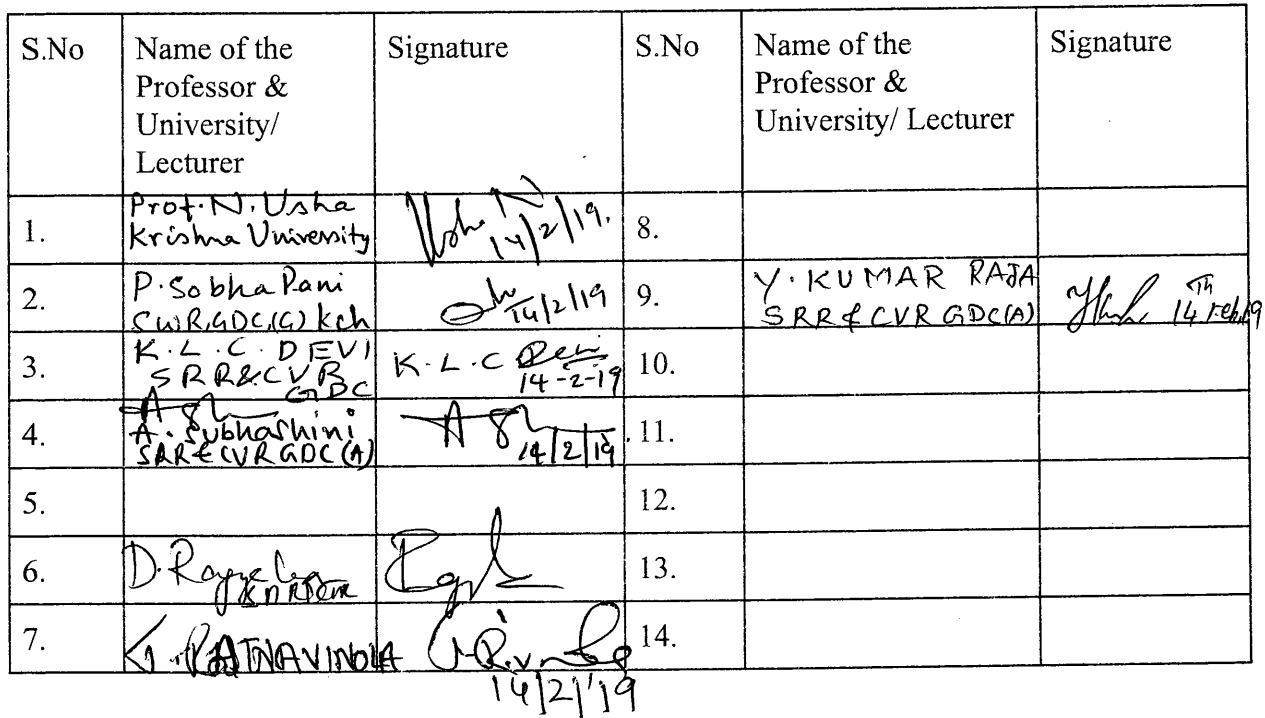 S.No Name of the Professor & University/ Lecturer Signature S.No Name of the Professor & University/ Lecturer Signature
1. Prof. N. Usha Krishna University Usha N 14/2/19. 8.
2. P. Sobha Rani 14/2/19 9. Y. KUMAR RAJA SRR & CVR GDC(A) 14th Feb,19
3. K.L.C. DEVI SRR&CVR GDC K.L.C Devi 14-2-19 10.
4. A. Subhashini SRR & CVR GDC (A) 14/2/19 11.
5. 12.
6. D. 13.
7. RATNAVINOLA 14/2/'19 14.